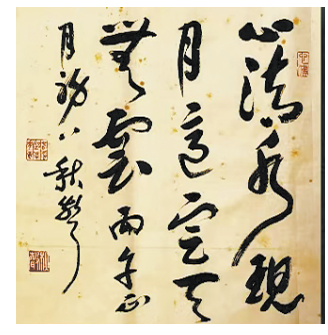 心清水現
月意定天
無雲丙午正
月初八秋